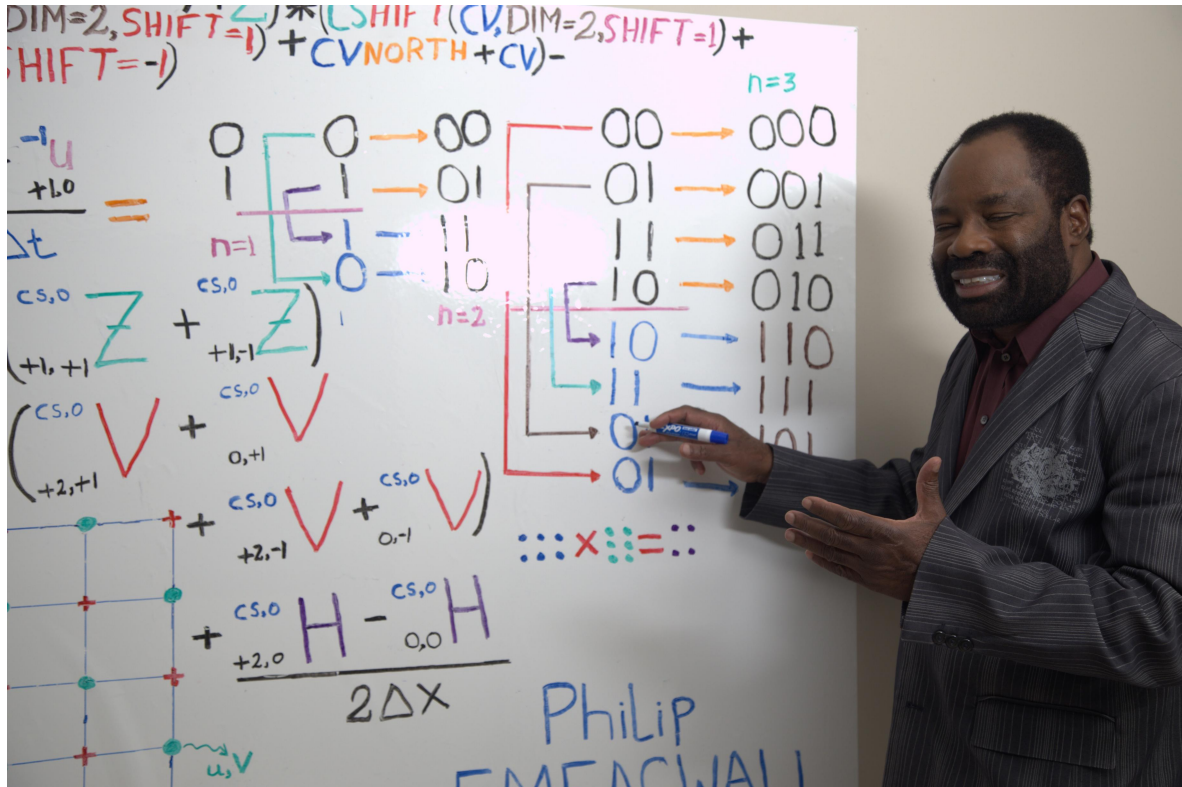 DIM=2,SHIFT=1)*(CSHIFT(CV,DIM=2,SHIFT=1)+
SHIFT=-1)+CVNORTH+CV)-
n=3
-1 u
+1,0
=
Δt
0 0 → 00
1 1 → 01
1 11
0 10
n=1
n=2
00 → 000
01 → 001
11 → 011
10 → 010
10 → 110
11 → 111
0 101
01 →
cs,0 Z +1,+1 + cs,0 Z +1,-1 )
( cs,0 V +2,+1 + cs,0 V 0,+1
+ cs,0 V +2,-1 + cs,0 V 0,-1 )
x =
+ cs,0 H +2,0 - cs,0 H 0,0
2ΔX
u,V
PhiLip
EMEAGWALI